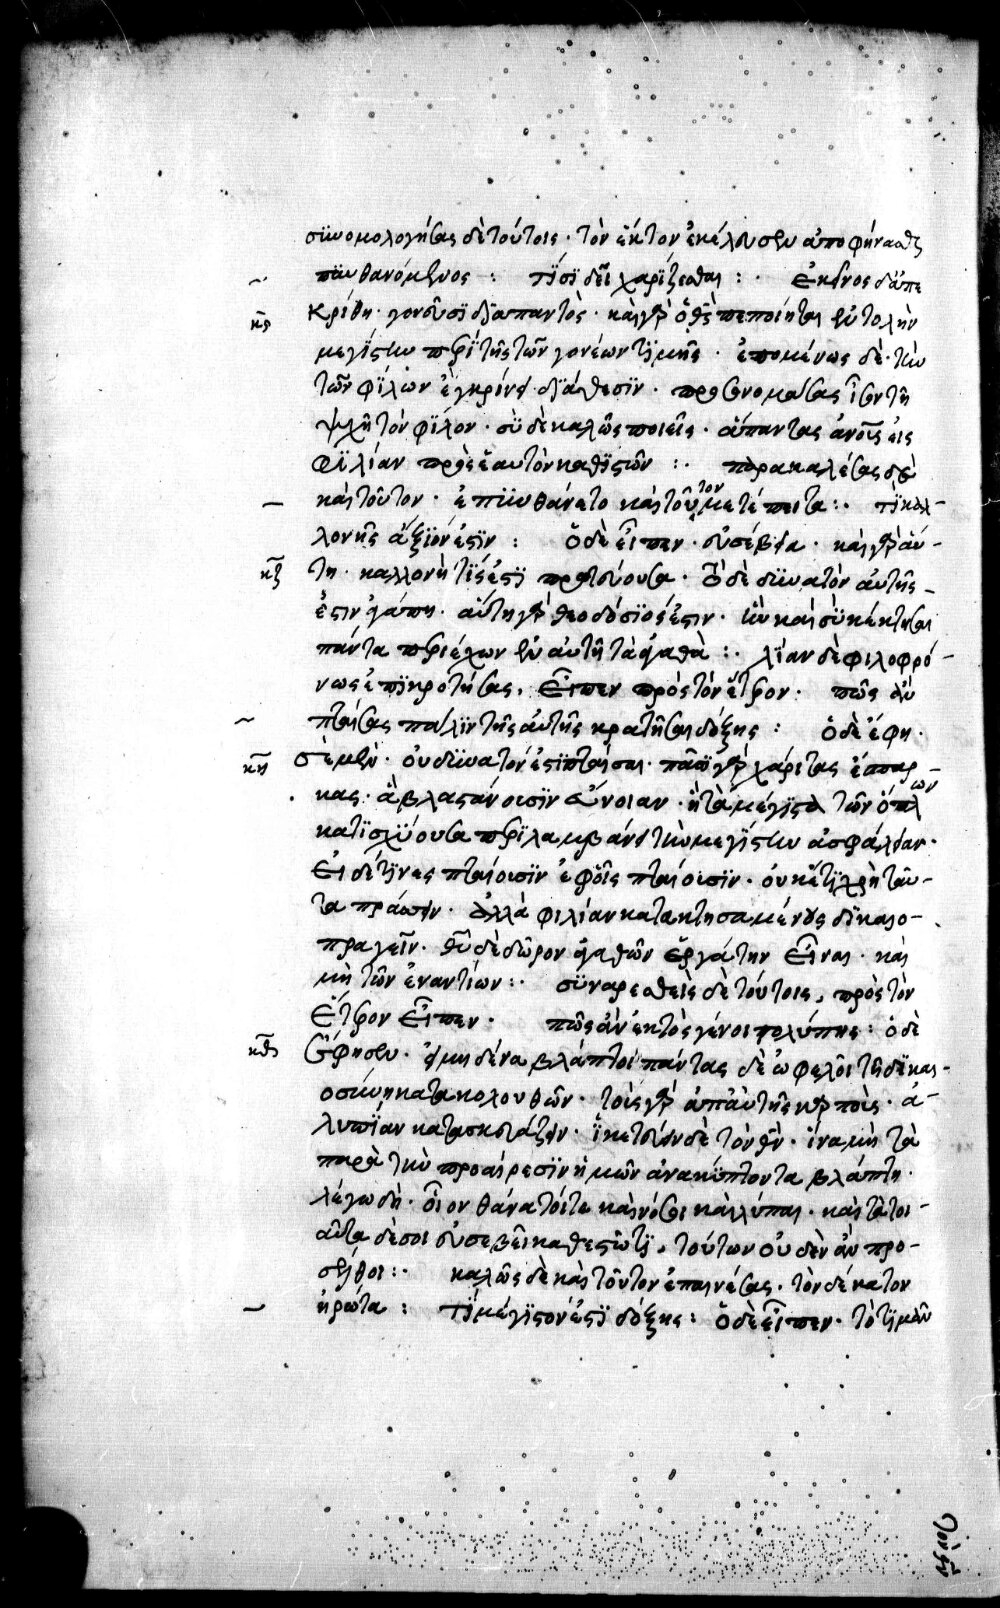 συνομολογήσας δὲ τούτοις· τὸν ἕκτον ἐκέλευσεν ἀποφήνασθαι
πυνθανόμενος : τίσϊ δεῖ χαρίζεσθαι : · ἐκεῖνος δ' ἀπε
κς κρίθη· γονεῦσϊ διαπαντὸς· καὶ γὰρ ὁ θς πεποίηται ἐντολὴν
μεγίστην περὶ τῆς τῶν γονέων τϊμῆς· ἑπομένως δὲ· τὴν
τῶν φίλων ἐγκρίνει διάθεσϊν· προσονομάσας ἴσον τῆ
ψχῆ τὸν φίλον· σὺ δὲ καλῶς ποιεῖς· ἅπαντας ἀνους εἰς
φϊλίαν πρὸς ἑαυτὸν καθϊστῶν : · παρακαλέσας δὲ
καὶ τοῦτον· ἐπυνθάνετο καὶ τοῦ μετέπειτα : · τί καλ-
τον
λονῆς ἄξϊόν ἐστϊν : ὁ δὲ εἶπεν· εὐσέβεια· καὶ γὰρ αὕ-
κζ τη· καλλονή τίς ἐστϊ πρωτεύουσα· τὸ δὲ δυνατὸν αὐτῆς-
ἐστιν ἀγάπη· αὕτη γὰρ θεοδόσϊός ἐστιν· ἣν καὶ σὺ κέκτησαι
πάντα περιέχων ἐν αὐτῆ τὰ ἀγαθὰ : · λίαν δὲ φιλοφρό-
νως ἐπϊκροτήσας, εἶπεν πρὸς τὸν ἕτερον· πῶς ἂν
πταίσας πάλϊν τῆς αὐτῆς κρατῆσαι δόξης : ὁ δὲ ἔφη·
κη σὲ μὲν· οὐ δυνατόν ἐστϊ πταῖσαι· πᾶσϊ γὰρ χάριτας ἔσπαρ-
κας· ἃ βλαστάνουσϊν εὔνοιαν· ἣ τὰ μέγϊστα τῶν ὅπλ
ων
κατϊσχύουσα περϊλαμβάνει τὴν μεγίστην ἀσφάλειαν·
εἰ δέ τϊνες πταίουσϊν ἐφ' οἷς πταίουσϊν· οὐκέτϊ χρὴ ταῦ-
τα πράσσειν· ἀλλὰ φιλίαν κατακτησαμένους δϊκαιο-
πραγεῖν· θυ δὲ δῶρον ἀγαθῶν ἐργάτην εἶναι· καὶ
μὴ τῶν ἐναντίων : · συναρεσθεὶς δὲ τούτοις, πρὸς τὸν
ἕτερον εἶπεν· πῶς ἂν ἐκτὸς γένοιτο λύπης : ὁ δὲ
κθ ἔφησεν· εἰ μηδένα βλάπτοι πάντας δὲ ὠφελοῖ τῆ δϊκαι-
οσύνη κατακολουθῶν· τοὺς γὰρ ἀπ' αὐτῆς καρποὺς· ἀ-
λυπίαν κατασκευάζειν· ἱκετεύειν δὲ τὸν θν· ἵνα μὴ τὰ
παρὰ τὴν προαίρεσϊν ἡμῶν ἀνακύπτοντα βλάπτη·
λέγω δὴ· οἷον θάνατοί τε καὶ νόσοι καὶ λύπαι· καὶ τὰ τοι-
αῦτα δέ σοι εὐσεβεῖ καθεστῶτϊ, τούτων οὐδὲν ἂν προ-
σέλθοι : · καλῶς δὲ καὶ τοῦτον ἐπαινέσας· τὸν δέκατον
ἠρώτα : τί μέγϊστόν ἐστϊ δόξης : ὁ δὲ εἶπεν· τὸ τϊμᾶν
τὸν θν